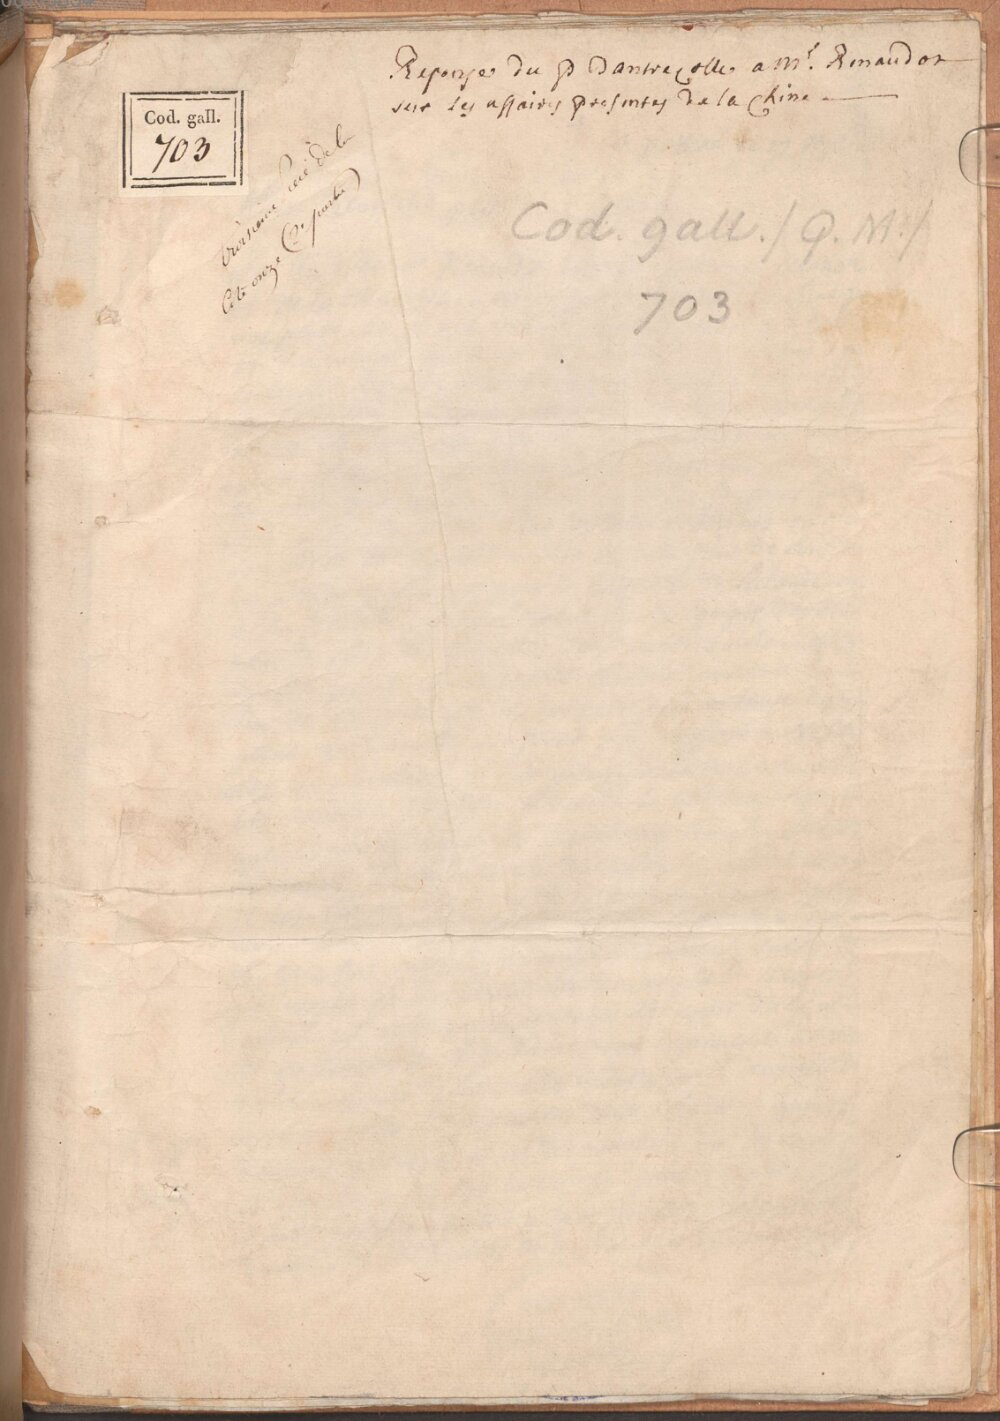 Reponse du P Dantrecolle a Mr. Renaudot
sur les affaires presentes de la Chine
Cod. gall.
703
troisieme
Cote onze (2e partie)
Cod. gall. / Q. M. /
703